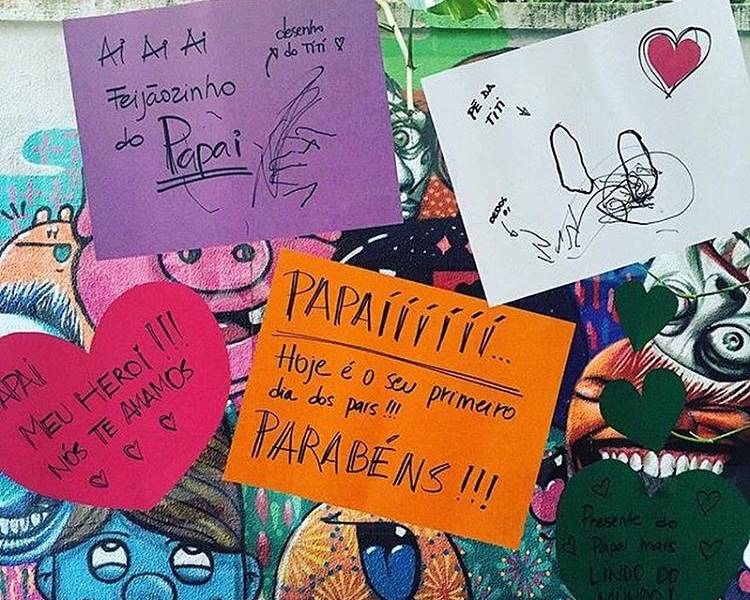 AI AI AI
Feijãozinho
do Papai
desenho
do TiTi
PÉ DA
TiTi
DEDOS
PAPAÍÍÍÍÍÍÍ...
Hoje é o seu primeiro
dia dos pais!!!
PARABÉNS!!!
PAPAI
MEU HEROI!!!
NÓS TE AMAMOS
Presente do
Papai mais
LINDO DO
MUNDO!